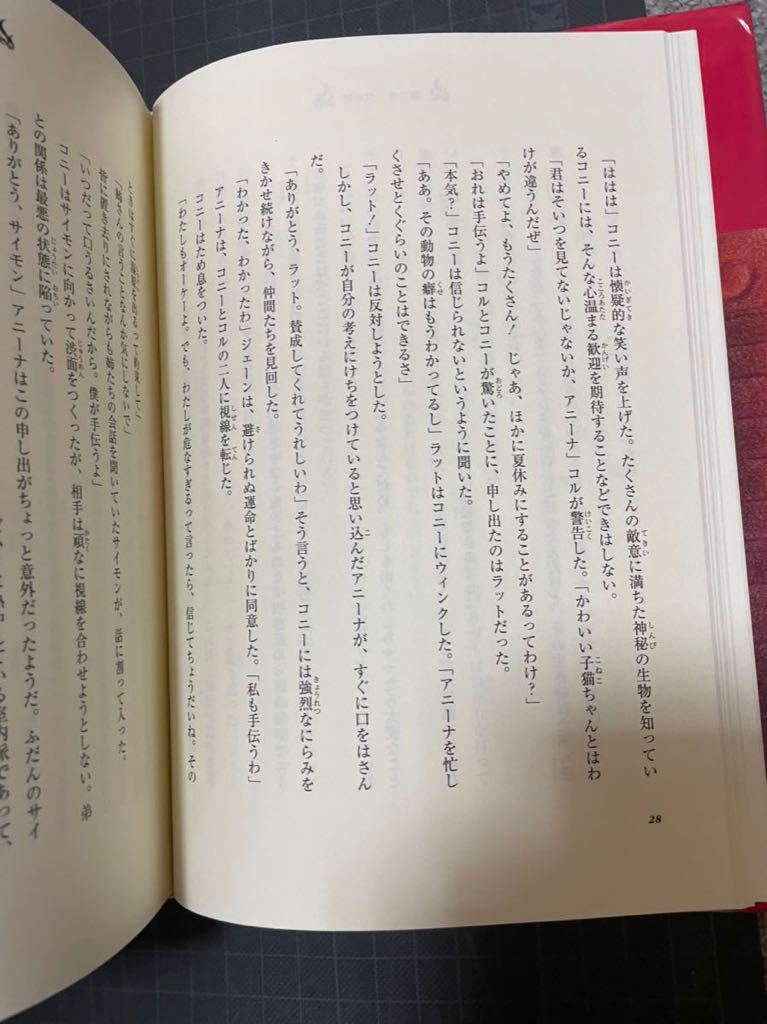 「ははは」コニーは懐疑的な笑い声を上げた。たくさんの敵意に満ちた神秘の生物を知ってい
るコニーには、そんな心温まる歓迎を期待することなどできはしない。
「君はそいつを見てないじゃないか、アニーナ」コルが警告した。「かわいい子猫ちゃんとはわ
けが違うんだぜ」
「やめてよ、もうたくさん！　じゃあ、ほかに夏休みにすることがあるってわけ？」
「おれは手伝うよ」コルとコニーが驚いたことに、申し出たのはラットだった。
「本気？」コニーは信じられないというように聞いた。
「ああ。その動物の癖はもうわかってるし」ラットはコニーにウィンクした。「アニーナを忙し
くさせとくぐらいのことはできるさ」
「ラット！」コニーは反対しようとした。
しかし、コニーが自分の考えにけちをつけていると思い込んだアニーナが、すぐに口をはさん
だ。
「ありがとう、ラット。賛成してくれてうれしいわ」そう言うと、コニーには強烈なにらみを
きかせ続けながら、仲間たちを見回した。
「わかった、わかったわ」ジェーンは、避けられぬ運命とばかりに同意した。「私も手伝うわ」
アニーナは、コニーとコルの二人に視線を転じた。
コニーはため息をついた。
「わたしもオーケーよ。でも、わたしが危なすぎるって言ったら、信じてちょうだいね。その
28
ときはすぐに
「姉さんの言うことなんか気にしないで」
皆に置き去りにされながらも姉たちの会話を聞いていたサイモンが、話に割って入った。
「いつだって口うるさいんだから。僕が手伝うよ」
コニーはサイモンに向かって渋面をつくったが、相手は頑なに視線を合わせようとしない。弟
との関係は最悪の状態に陥っていた。
「ありがとう、サイモン」アニーナはこの申し出がちょっと意外だったようだ。ふだんのサイ
室内派であって、